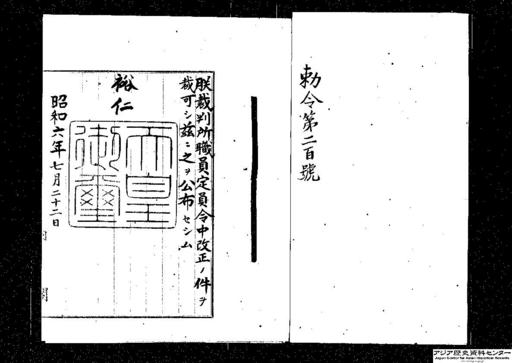 勅令第二百號
朕裁判所職員定員令中改正ノ件ヲ
裁可シ茲ニ之ヲ公布セシム
裕仁
天皇
御璽
昭和六年七月二十二日
アジア歴史資料センター
Japan Center for Asian Historical Records